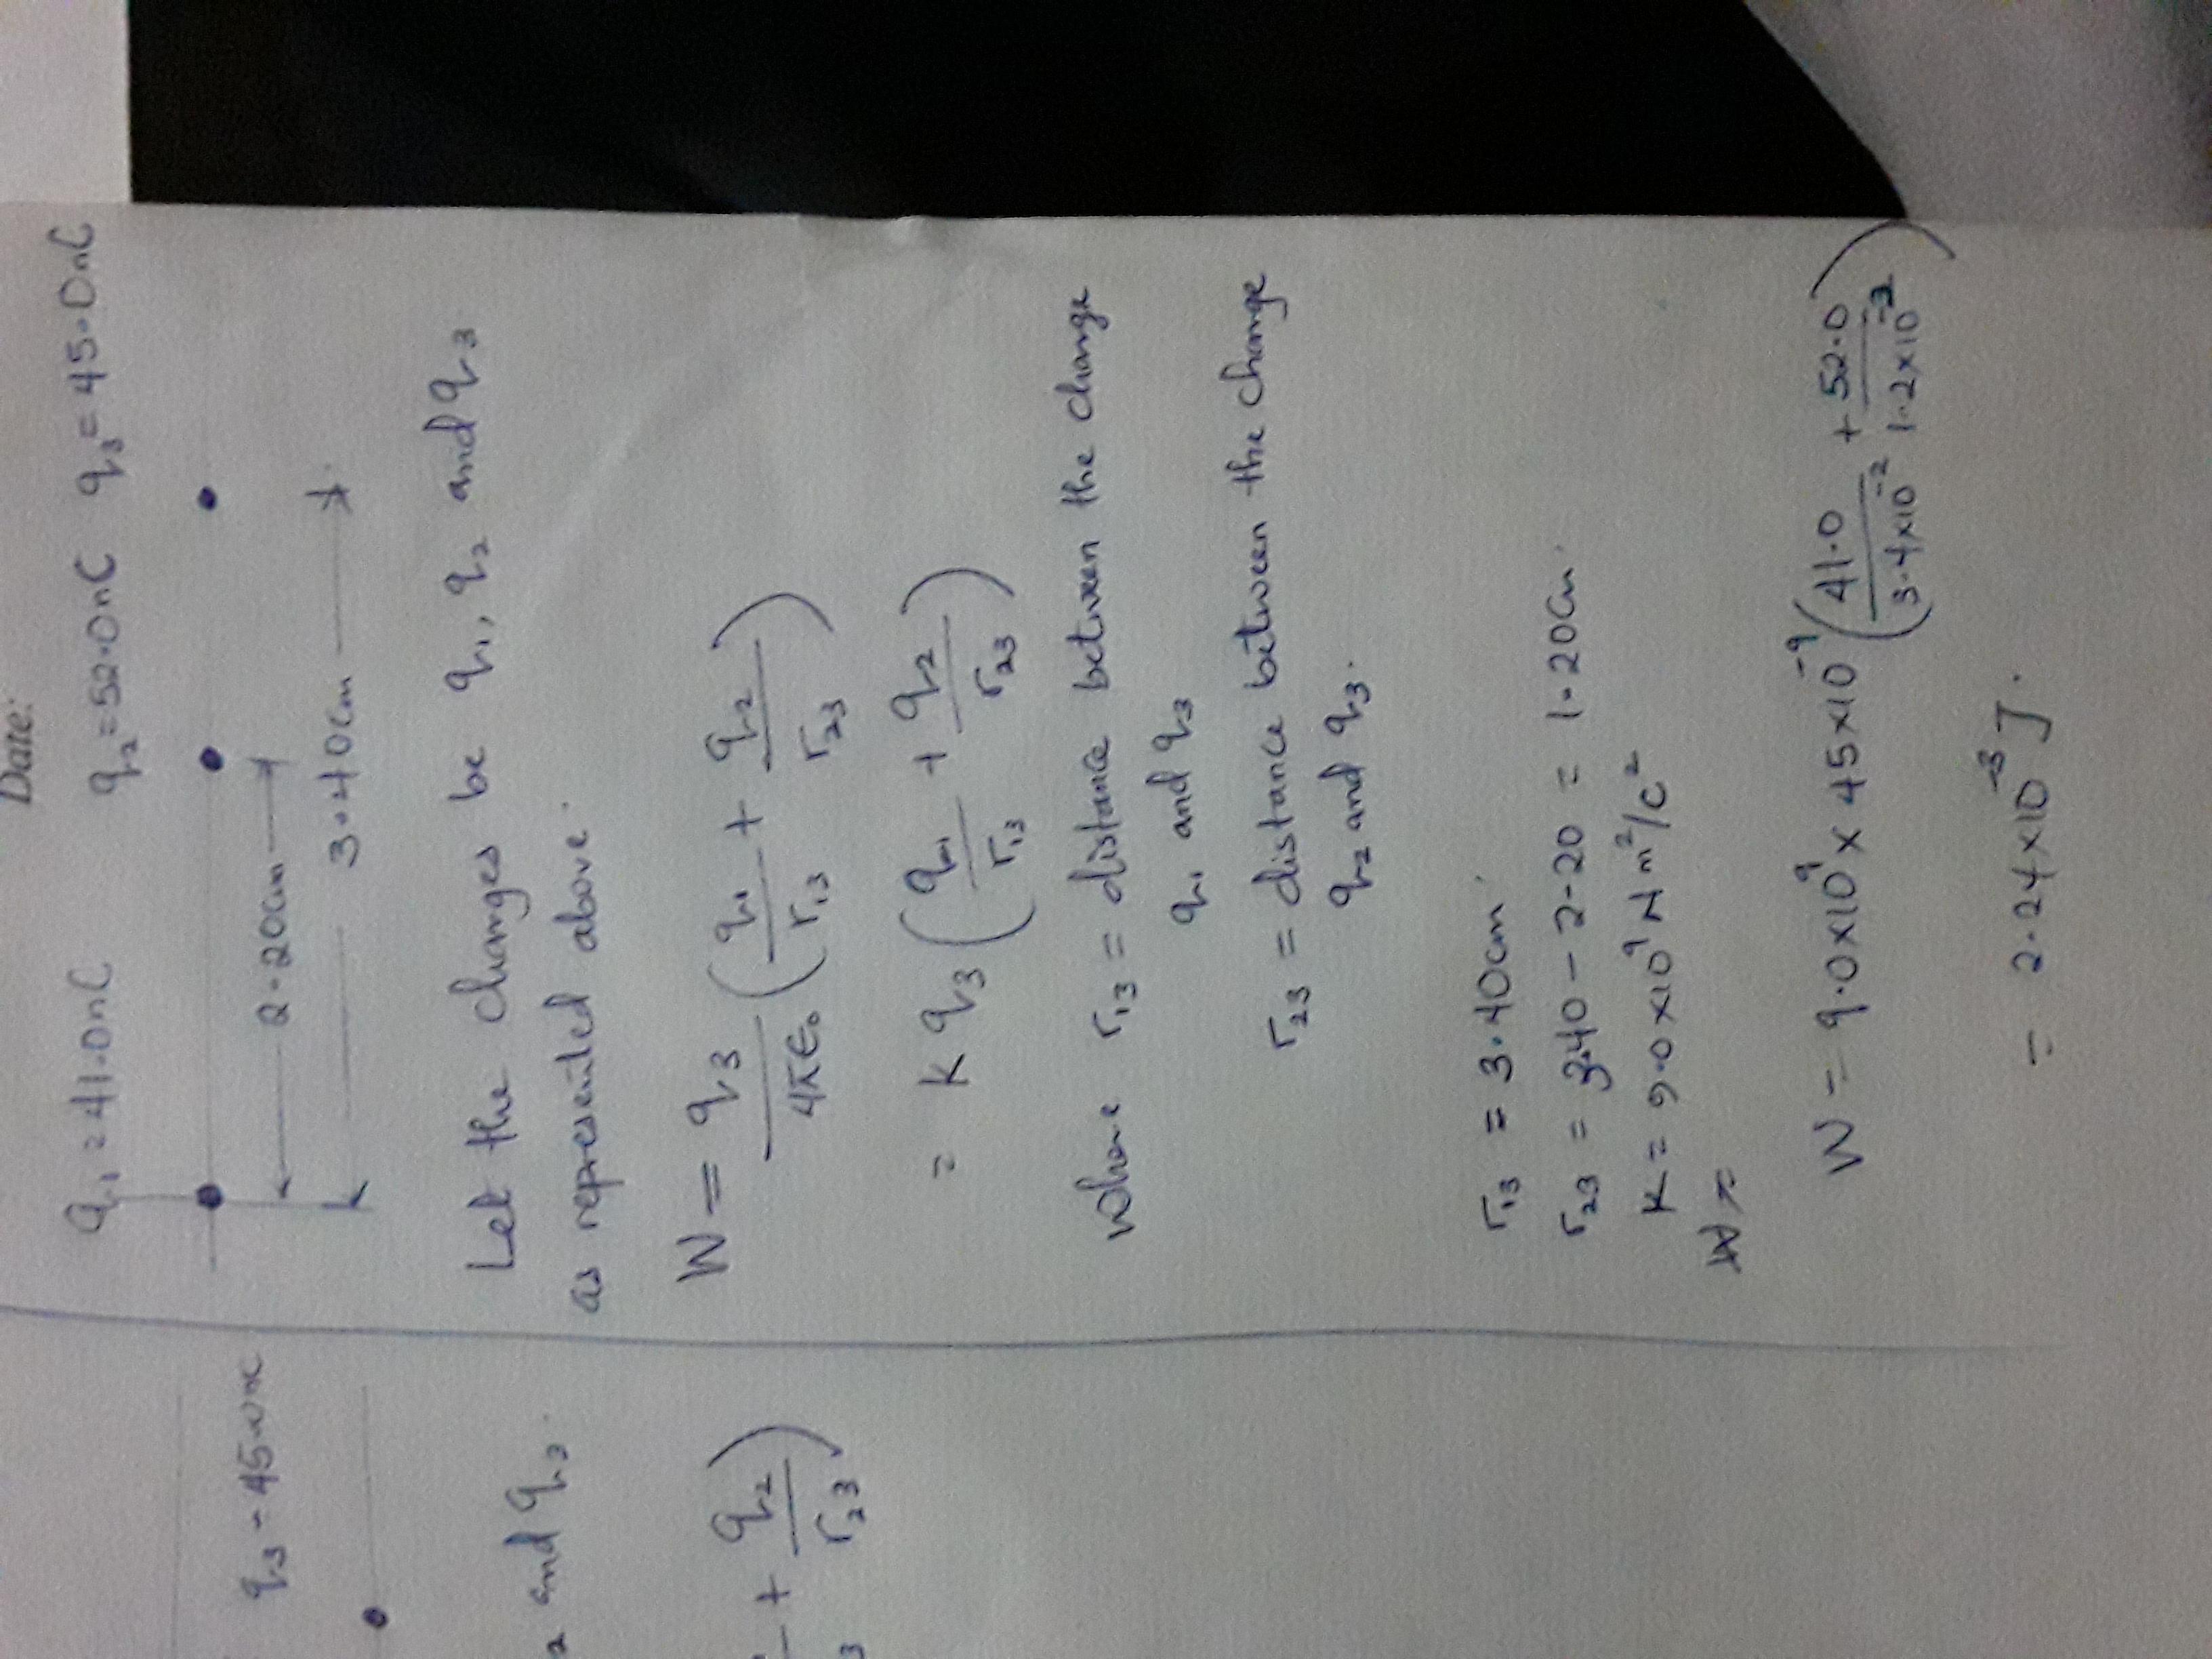 Date:
q₁ = 41.0nC q₂ = 52.0nC q₃ = 45.0nC
2.20cm
3.40cm
Let the changes be q₁, q₂ and q₃
as represented above.
W = q₃/4πε₀ (q₁/r₁₃ + q₂/r₂₃)
= K q₃ (q₁/r₁₃ + q₂/r₂₃)
where r₁₃ = distance between the change
q₁ and q₃
r₂₃ = distance between the change
q₂ and q₃.
r₁₃ = 3.40cm.
r₂₃ = 3.40 - 2.20 = 1.20cm.
K = 9.0x10⁹ N m²/c²
W = 9.0x10⁹ x 45x10⁻⁹ (41.0/3.4x10⁻² + 52.0/1.2x10⁻²)
= 2.24x10⁻³ J.
2 and q₃.
+ q₂/r₂₃)